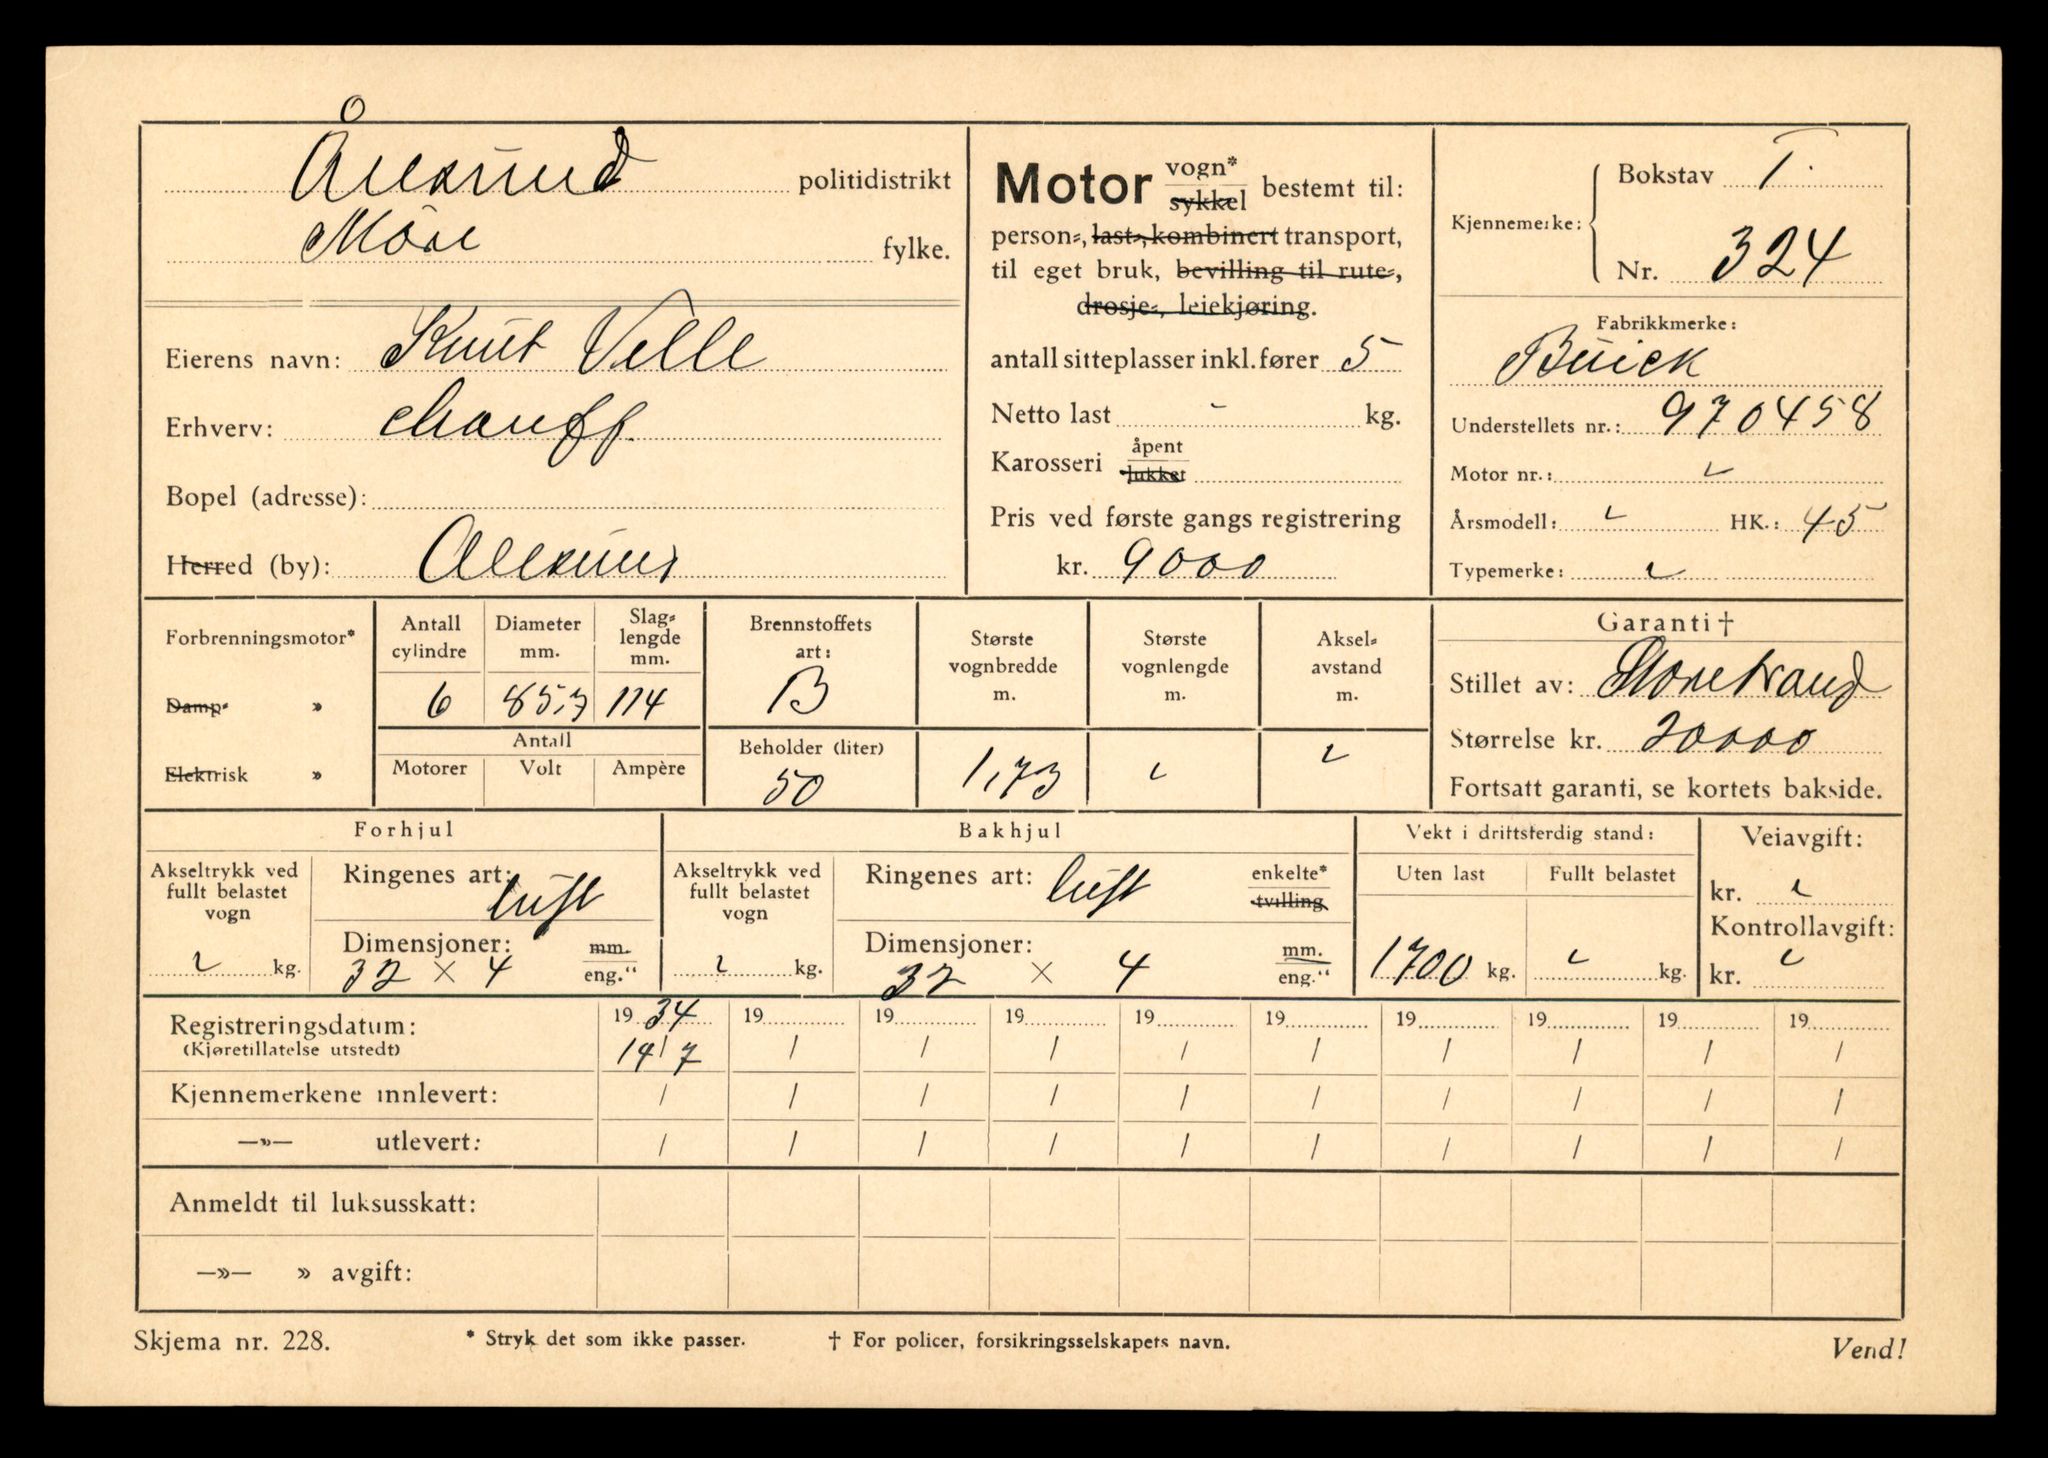 Ålesund politidistrikt
Möre fylke.
Eierens navn: Knut Velle
Erhverv: chauff.
Bopel (adresse):
Herred (by): Alesund
Motor vogn* sykkel bestemt til:
person-, last-, kombinert transport,
til eget bruk, bevilling til rute-,
drosje-, leiekjøring.
antall sitteplasser inkl. fører 5
Netto last - kg.
Karosseri åpent lukket
Pris ved første gangs registrering
kr. 9000
Kjennemerke: Bokstav T.
Nr. 324
Fabrikkmerke:
Buick
Understellets nr.: 970458
Motor nr.:
Årsmodell: HK.: 45
Typemerke:
Forbrenningsmotor*
Damp- »
Elektrisk »
Antall cylindre Diameter mm. Slag-lengde mm.
6 85,7 114
Antall
Motorer Volt Ampère
Brennstoffets art:
B
Beholder (liter)
50
Største vognbredde m.
1,73
Største vognlengde m.
Aksel-avstand m.
Garanti †
Stillet av: Storebrand
Størrelse kr. 20000
Fortsatt garanti, se kortets bakside.
Forhjul
Akseltrykk ved fullt belastet vogn
kg.
Ringenes art: luft
Dimensjoner: mm. eng."
32 × 4
Bakhjul
Akseltrykk ved fullt belastet vogn
kg.
Ringenes art: luft enkelte* tvilling
Dimensjoner: mm. eng."
32 × 4
Vekt i driftsferdig stand:
Uten last Fullt belastet
1700 kg. kg.
Veiavgift:
kr.
Kontrollavgift:
kr.
Registreringsdatum: 1934 19 19 19 19 19 19 19 19 19
(Kjøretillatelse utstedt) 14/7 / / / / / / / / /
Kjennemerkene innlevert: / / / / / / / / / /
—»— utlevert: / / / / / / / / / /
Anmeldt til luksusskatt:
—»— » avgift:
Skjema nr. 228. * Stryk det som ikke passer. † For policer, forsikringsselskapets navn. Vend!